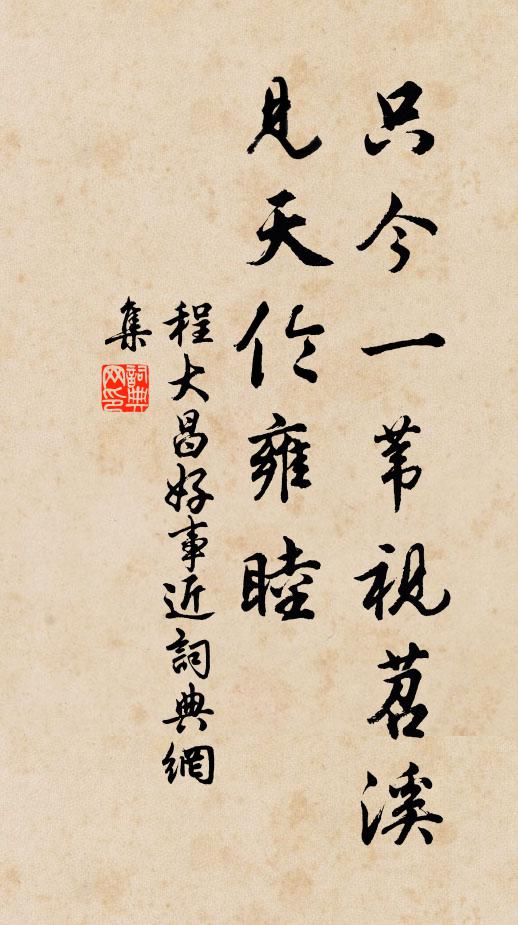 只今一苇視苕溪
見天伦雍睦
程大昌好事近詞典網
集
詞典
网印